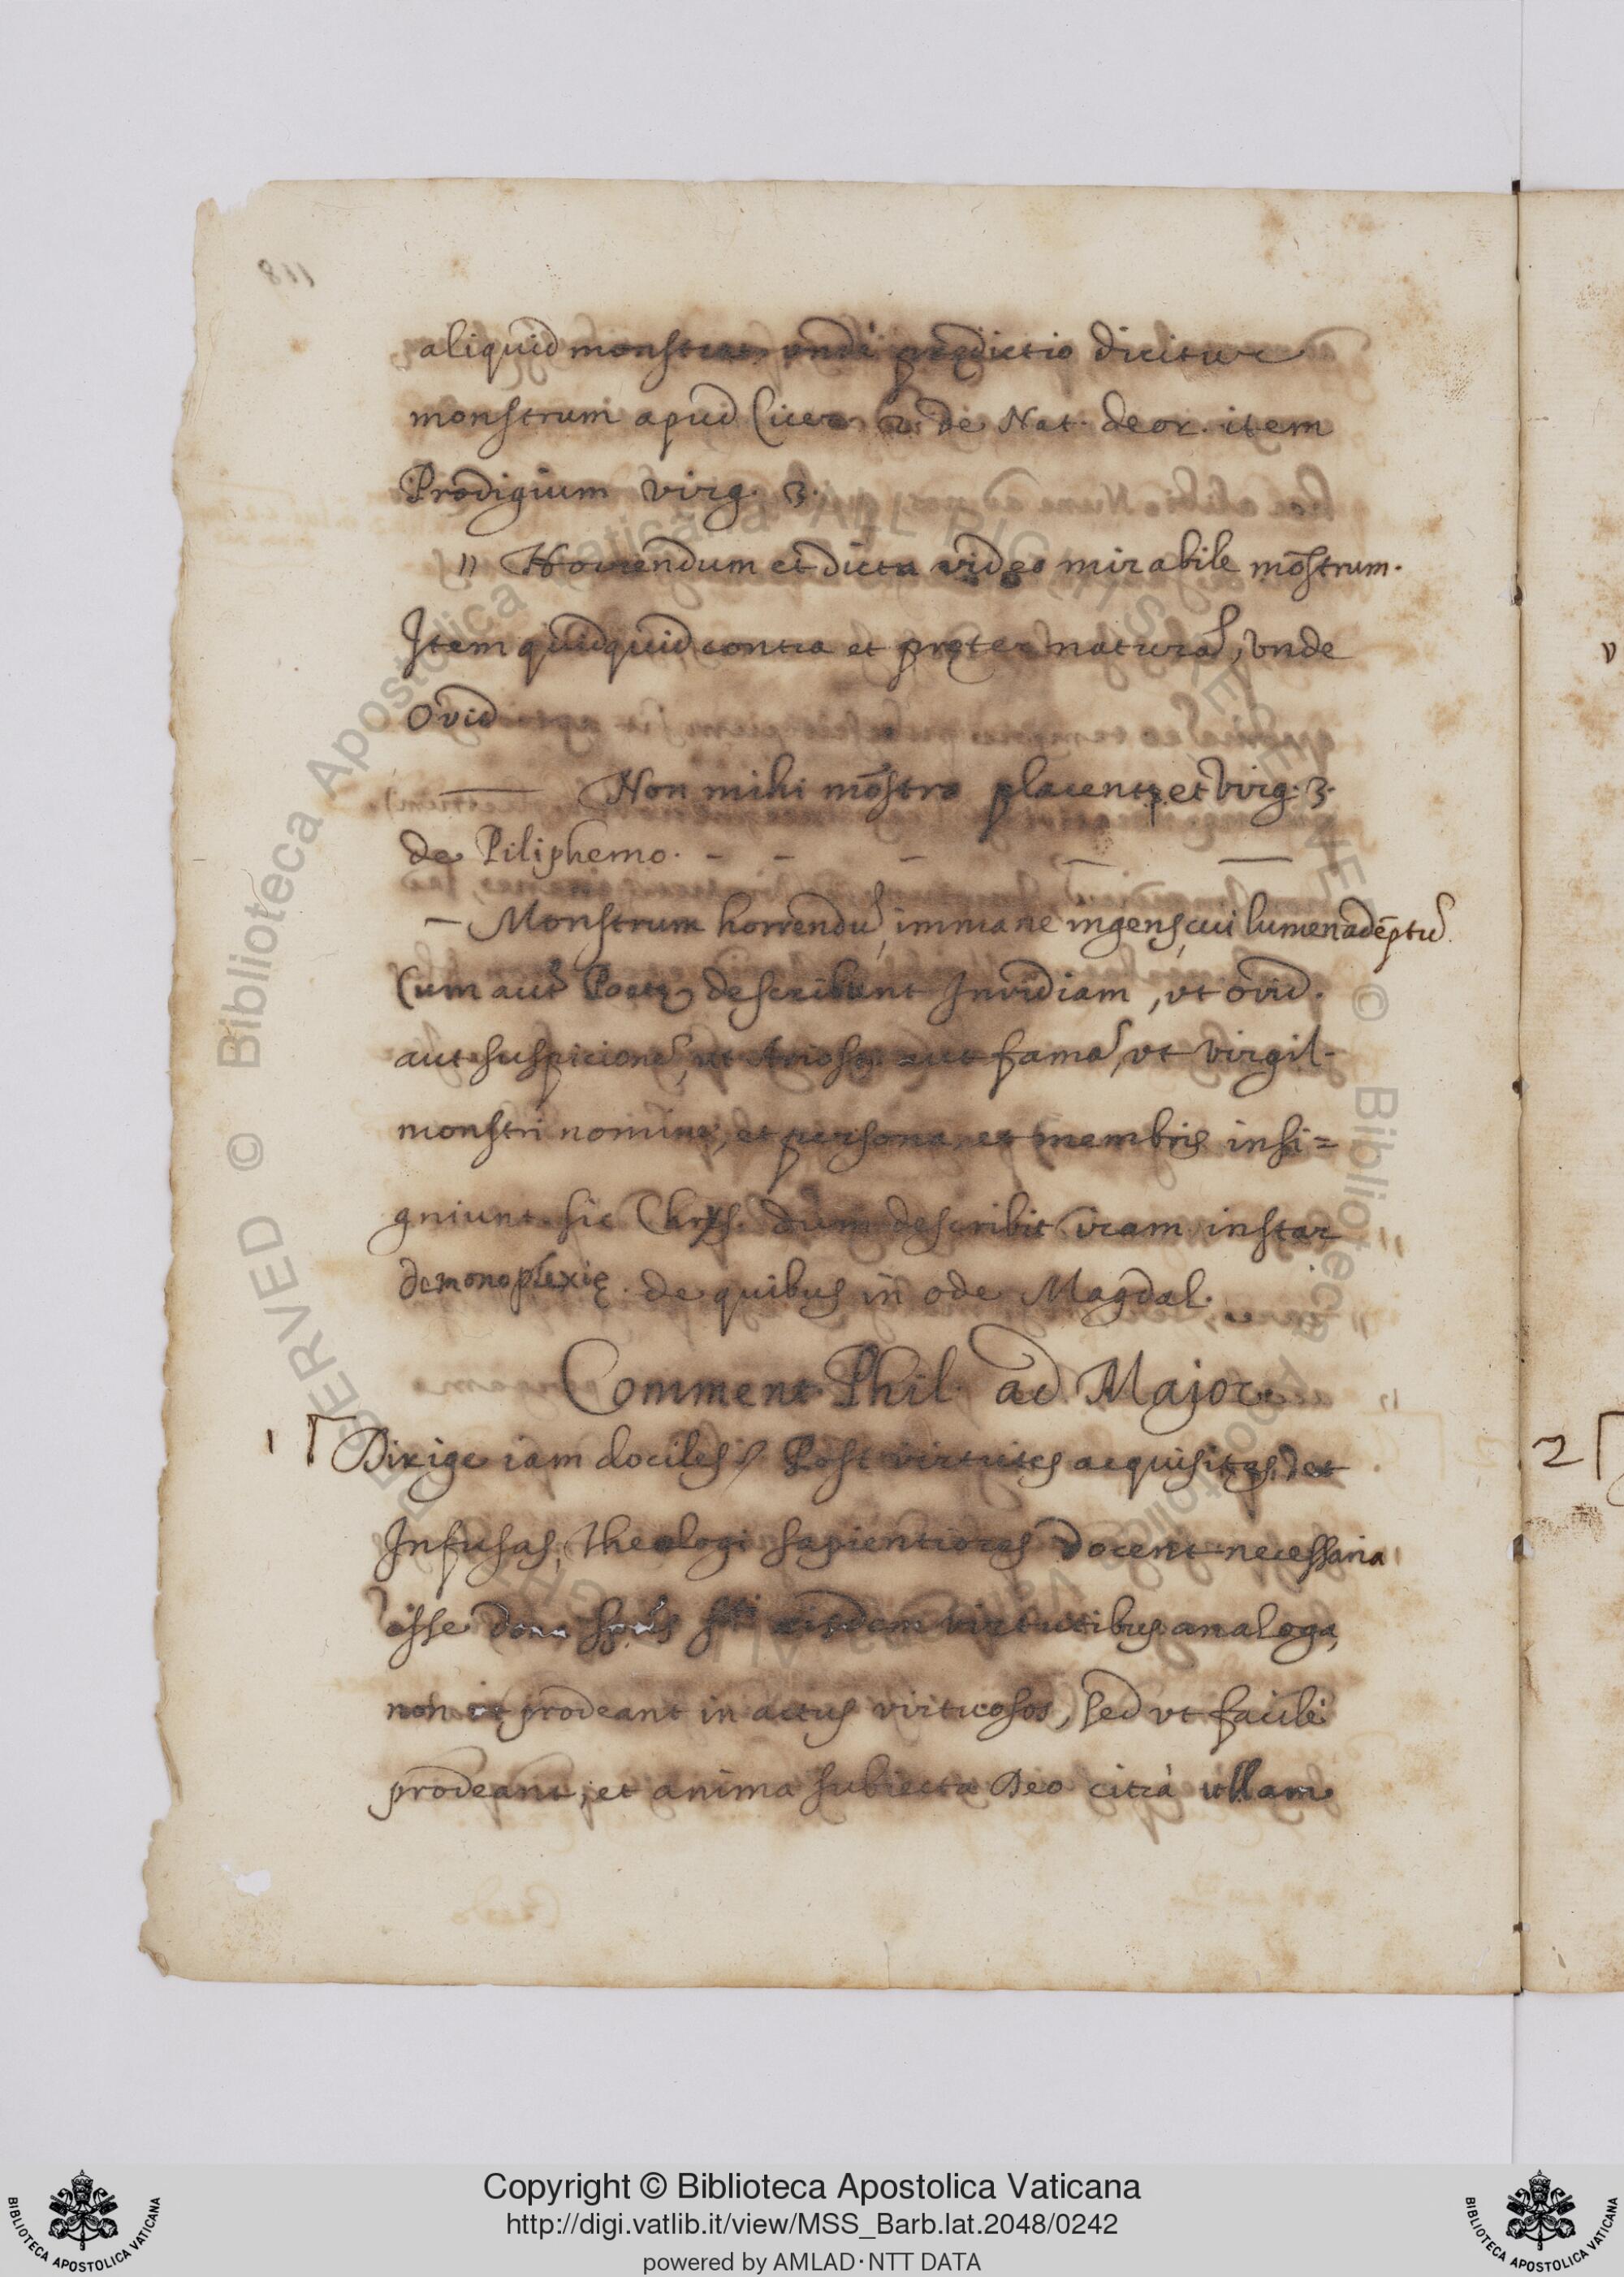 aliquid monstrat, unde prędictio dicitur
monstrum apud Cicer. 2. de Nat. deor. item
Prodigium virg. 3.
" Horrendum et dictu video mirabile mōstrum.
Item quidquid contra et pręter naturā, vnde
Ovid
— Non mihi mōstra placent; et virg. 3.
de Piliphemo. - - - — —
— Monstrum horrendū, immane ingens, cui lumen adēptū.
Cum aut Poetę describunt Invidiam, vt ovid.
aut suspicionē, ut Ariost. aut famā, vt virgil.
monstri nomine, et persona, et membris insi=
gniunt. sic Chrys. dum describit iram instar
demonoplexię. de quibus in ode Magdal.
Comment. Phil. ad Major.
1 Dirige iam dociles // Post virtutes acquisitas, et
Infusas, theologi sapientiores docent necessaria
esse dona spūs sti eisdem virtutibus analoga,
non ut prodeant in actus virtuosos, sed vt facile
prodeant, et anima subiecta Deo citrà ullam
2
Copyright © Biblioteca Apostolica Vaticana
http://digi.vatlib.it/view/MSS_Barb.lat.2048/0242
powered by AMLAD·NTT DATA
BIBLIOTECA APOSTOLICA VATICANA
BIBLIOTECA APOSTOLICA VATICANA